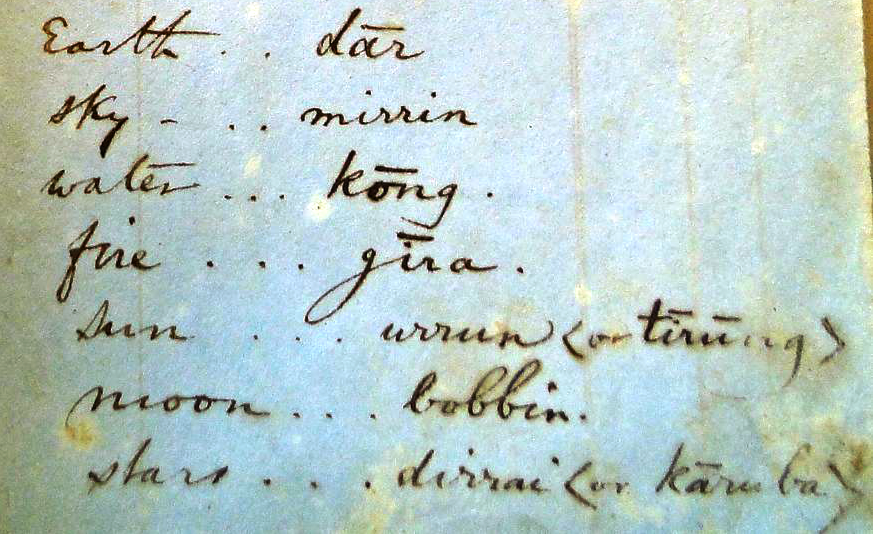 Earth . . dār
sky - . . mirrin
water . . . kōng .
fire . . . gīra .
sun . . . urrun <or tīrūng>
moon . . . bobbin.
stars . . . dirrai <or kāruba>